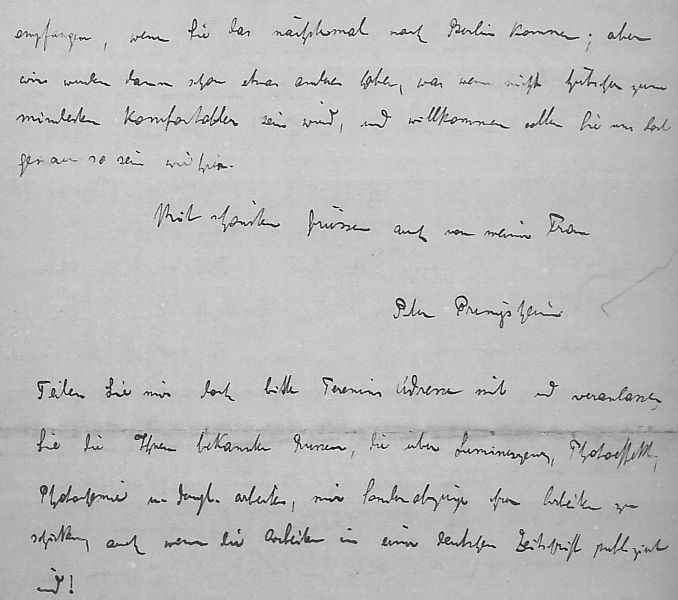 empfangen, wenn Sie das nächstemal nach Berlin kommen; aber
wir werden dann schon etwas anderes haben, was wenn nicht hübscher zum
mindesten komfortabler sein wird, und willkommen sollen Sie uns dort
genau so sein wie hier.
Mit schönsten Grüssen auch von meiner Frau
Peter Pringsheim
Teilen Sie mir doch bitte Terenins Adresse mit und veranlassen
Sie die Ihnen bekannten Russen, die über Lumineszenz, Photoeffekt,
Photochemie u. dergl. arbeiten, mir Sonderabzüge ihrer Arbeiten zu
schicken, auch wenn die Arbeiten in einer deutschen Zeitschrift publiziert
sind!